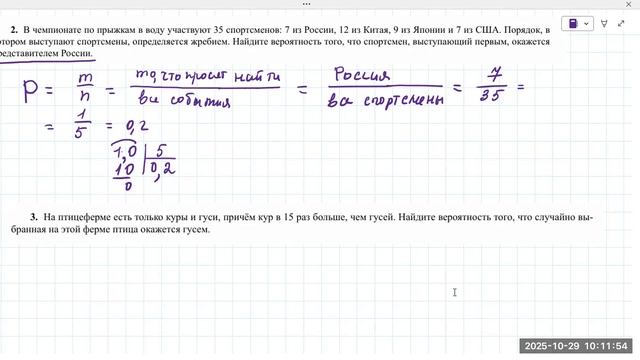 2. В чемпионате по прыжкам в воду участвуют 35 спортсменов: 7 из России, 12 из Китая, 9 из Японии и 7 из США. Порядок, в
отором выступают спортсмены, определяется жребием. Найдите вероятность того, что спортсмен, выступающий первым, окажется
редставителем России.
P = m/n = то, что просят найти / все события = Россия / все спортсмены = 7/35 =
= 1/5 = 0,2
1,0 5
10 0,2
0
3. На птицеферме есть только куры и гуси, причём кур в 15 раз больше, чем гусей. Найдите вероятность того, что случайно вы-
бранная на этой ферме птица окажется гусем.
2025-10-29 10:11:54